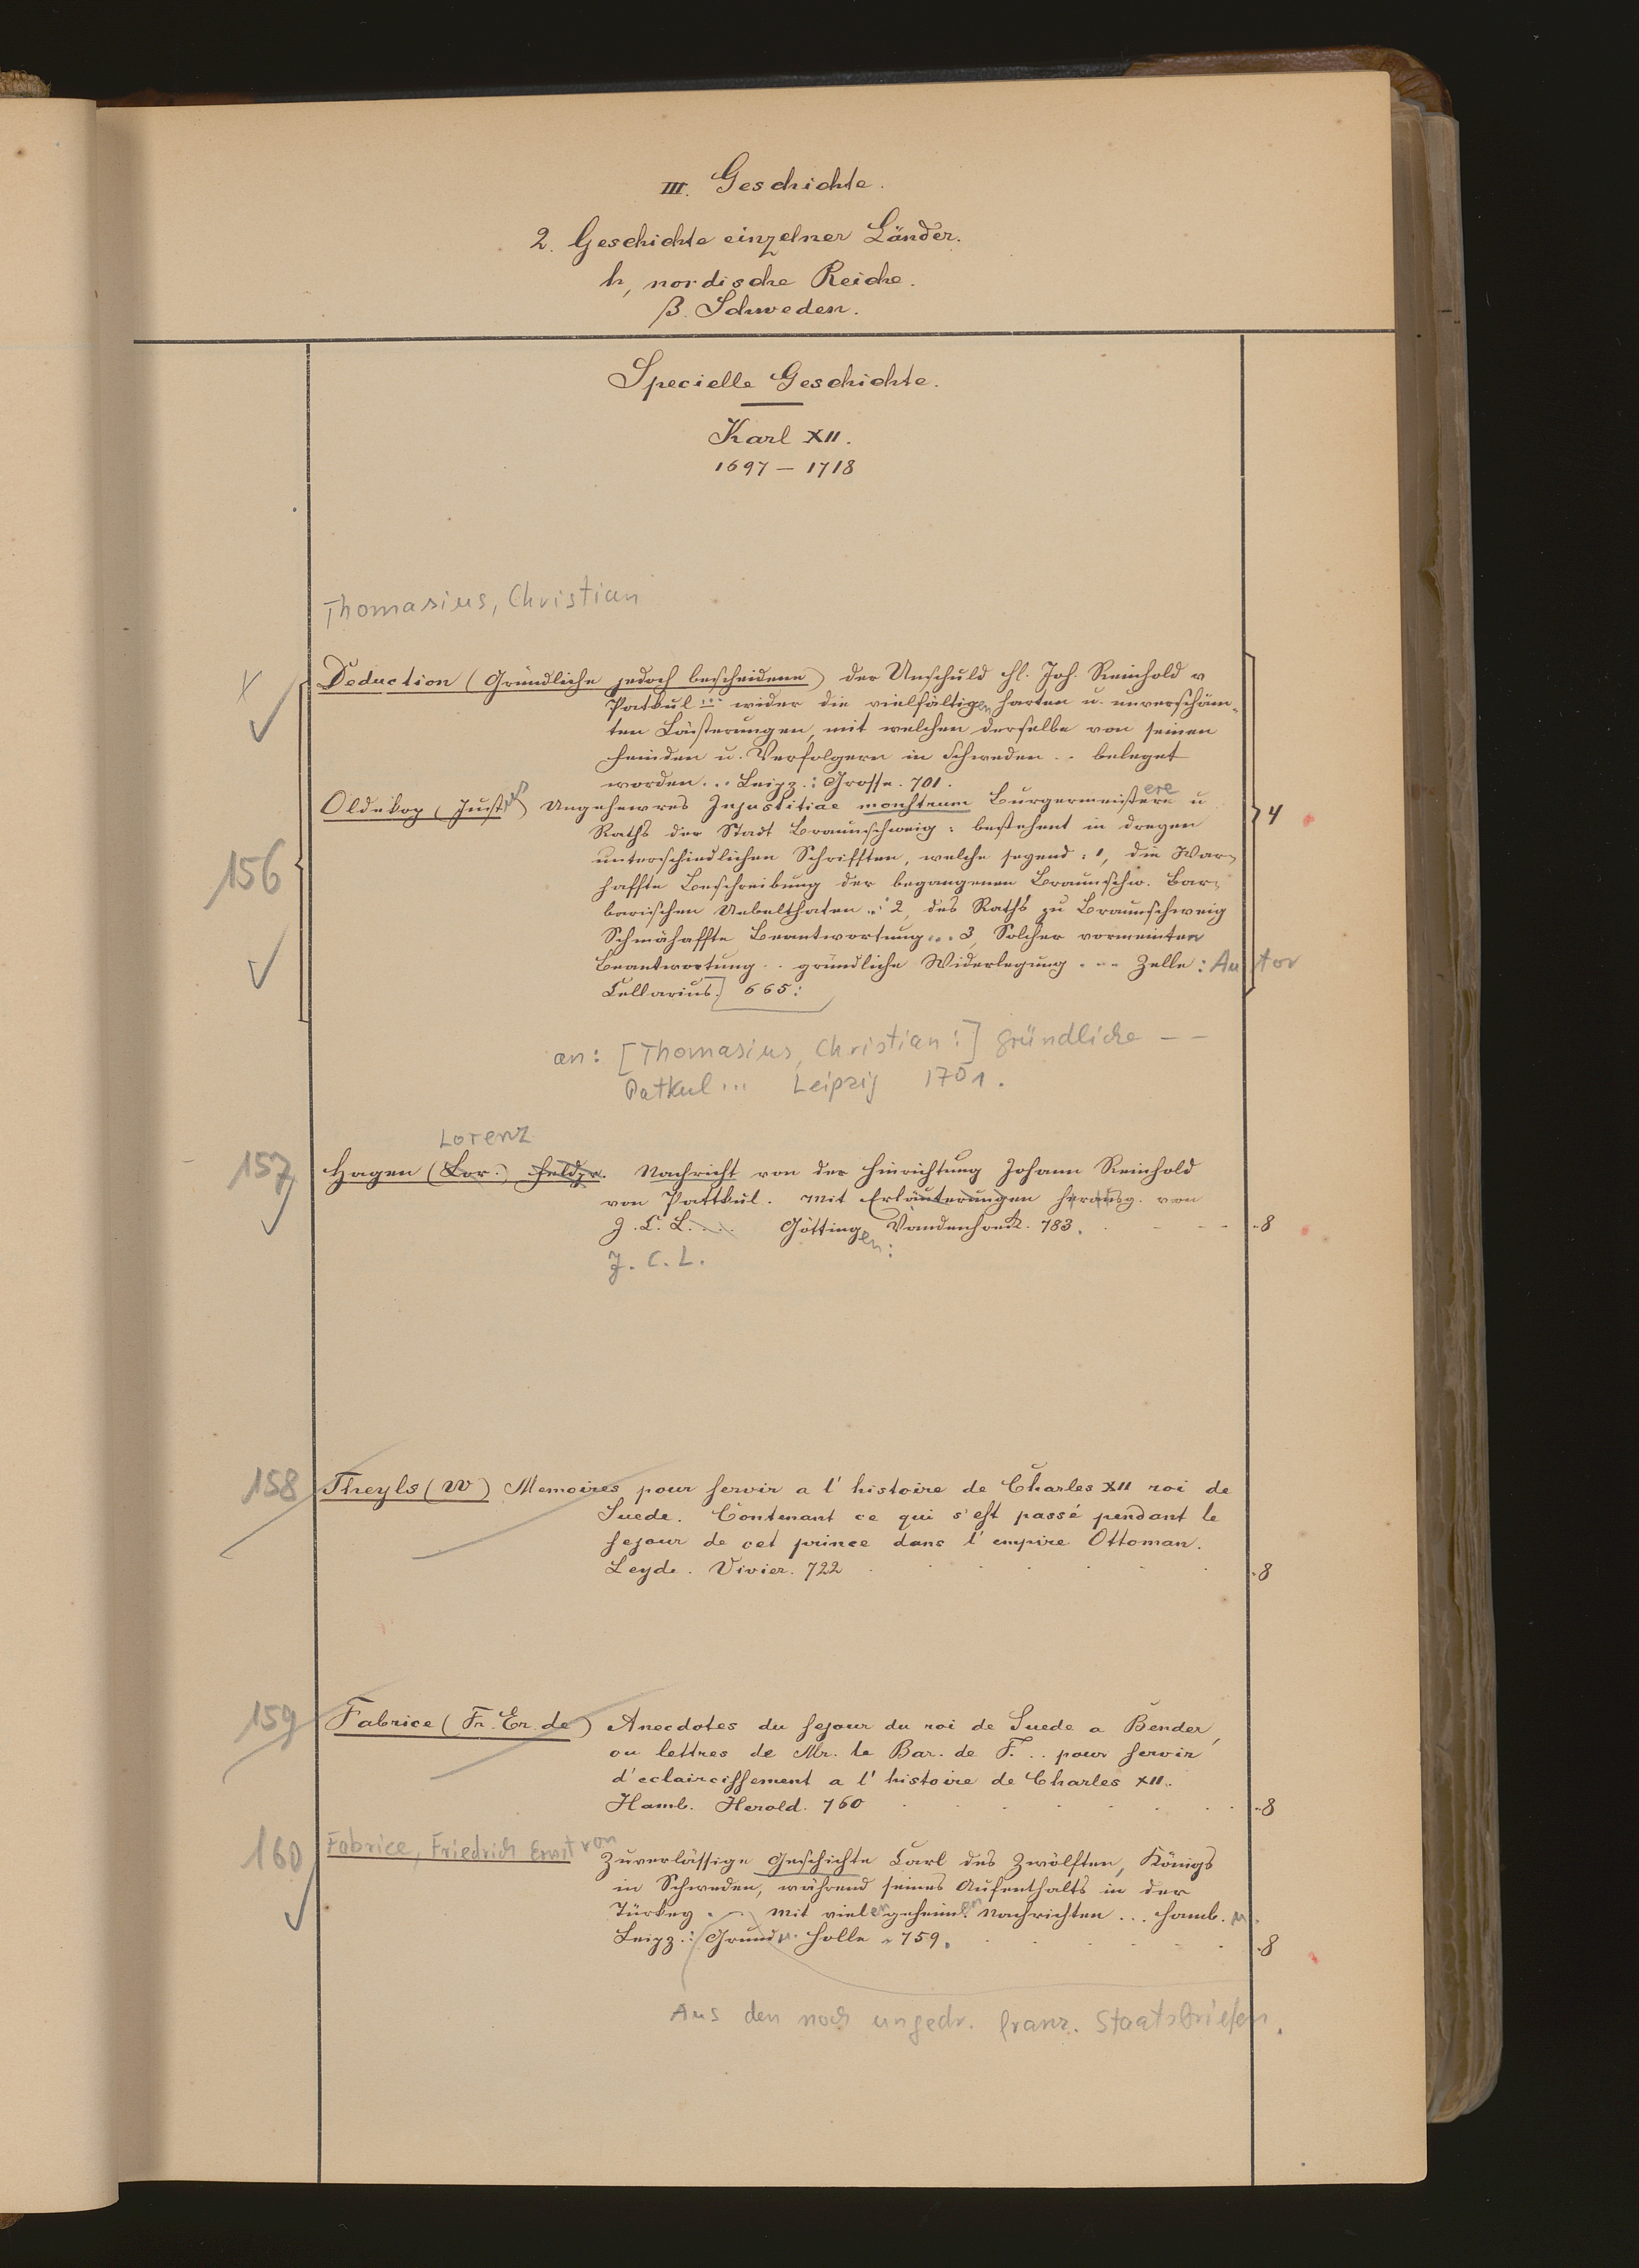 III. Geschichte.
2. Geschichte einzelner Länder.
h, nordische Reiche.
β. Schweden.
Specielle Geschichte.
Karl XII.
1697 – 1718
Thomasius, Christian
Deduction (Gründliche jedoch bescheidene) der Unschuld H. Joh. Reinhold v
Patkul ... wider die vielfältigen harten u. unverschäm-
ten Lästerungen, mit welchen derselbe von seinen
Feinden u. Verfolgern in Schweden .. beleget
worden ... Leipz.: Grosse. 701.
Oldekop (Justus) Ungehewres Injustitiae monstrum Bürgermeistere u
Raths der Stadt Braunschweig : bestehent in dreyen
156
unterschiedlichen Schrifften, welche seyend: 1, die War-
haffte Beschreibung der begangenen Braunschw. Bar-
barischen Uebelthaten ..: 2, des Raths zu Braunschweig
Schmähaffte Beantwortung ... 3, Solcher vermeinten
Beantwortung .. gründliche Widerlegung ... Zelle: Autor
Cellarius.] 665:
4
an: [Thomasius, Christian:] gründliche – –
Patkul ... Leipzig 1701.
Lorenz
157 Hagen (Lor.) Feldpr. Nachricht von der Hinrichtung Johann Reinhold
von Pattkul. Mit Erläuterungen herausg. von
J. C. L. ... Göttingen: Vandenhoeck. 783. 8
J. C. L.
158 Theyls (W) Memoires pour servir a l' histoire de Charles XII roi de
Suede. Contenant ce qui s'est passé pendant le
sejour de cet prince dans l' empire Ottoman.
Leyde. Vivier. 722 8
159 Fabrice (Fr. Er. de) Anecdotes du sejour du roi de Suede a Bender,
ou lettres de Mr. le Bar. de F. .. pour servir
d'eclaircissement a l' histoire de Charles XII.
Hamb. Herold. 760 8
160 Fabrice, Friedrich Ernst von Zuverlässige Geschichte Carl des Zwölften, Königs
in Schweden, während seines Aufenthalts in der
Türkey ... Mit vielen geheimen Nachrichten ... Hamb. u.
Leipz.: Grund u. Holle. 759. 8
Aus den noch ungedr. franz. Staatsbriefen.